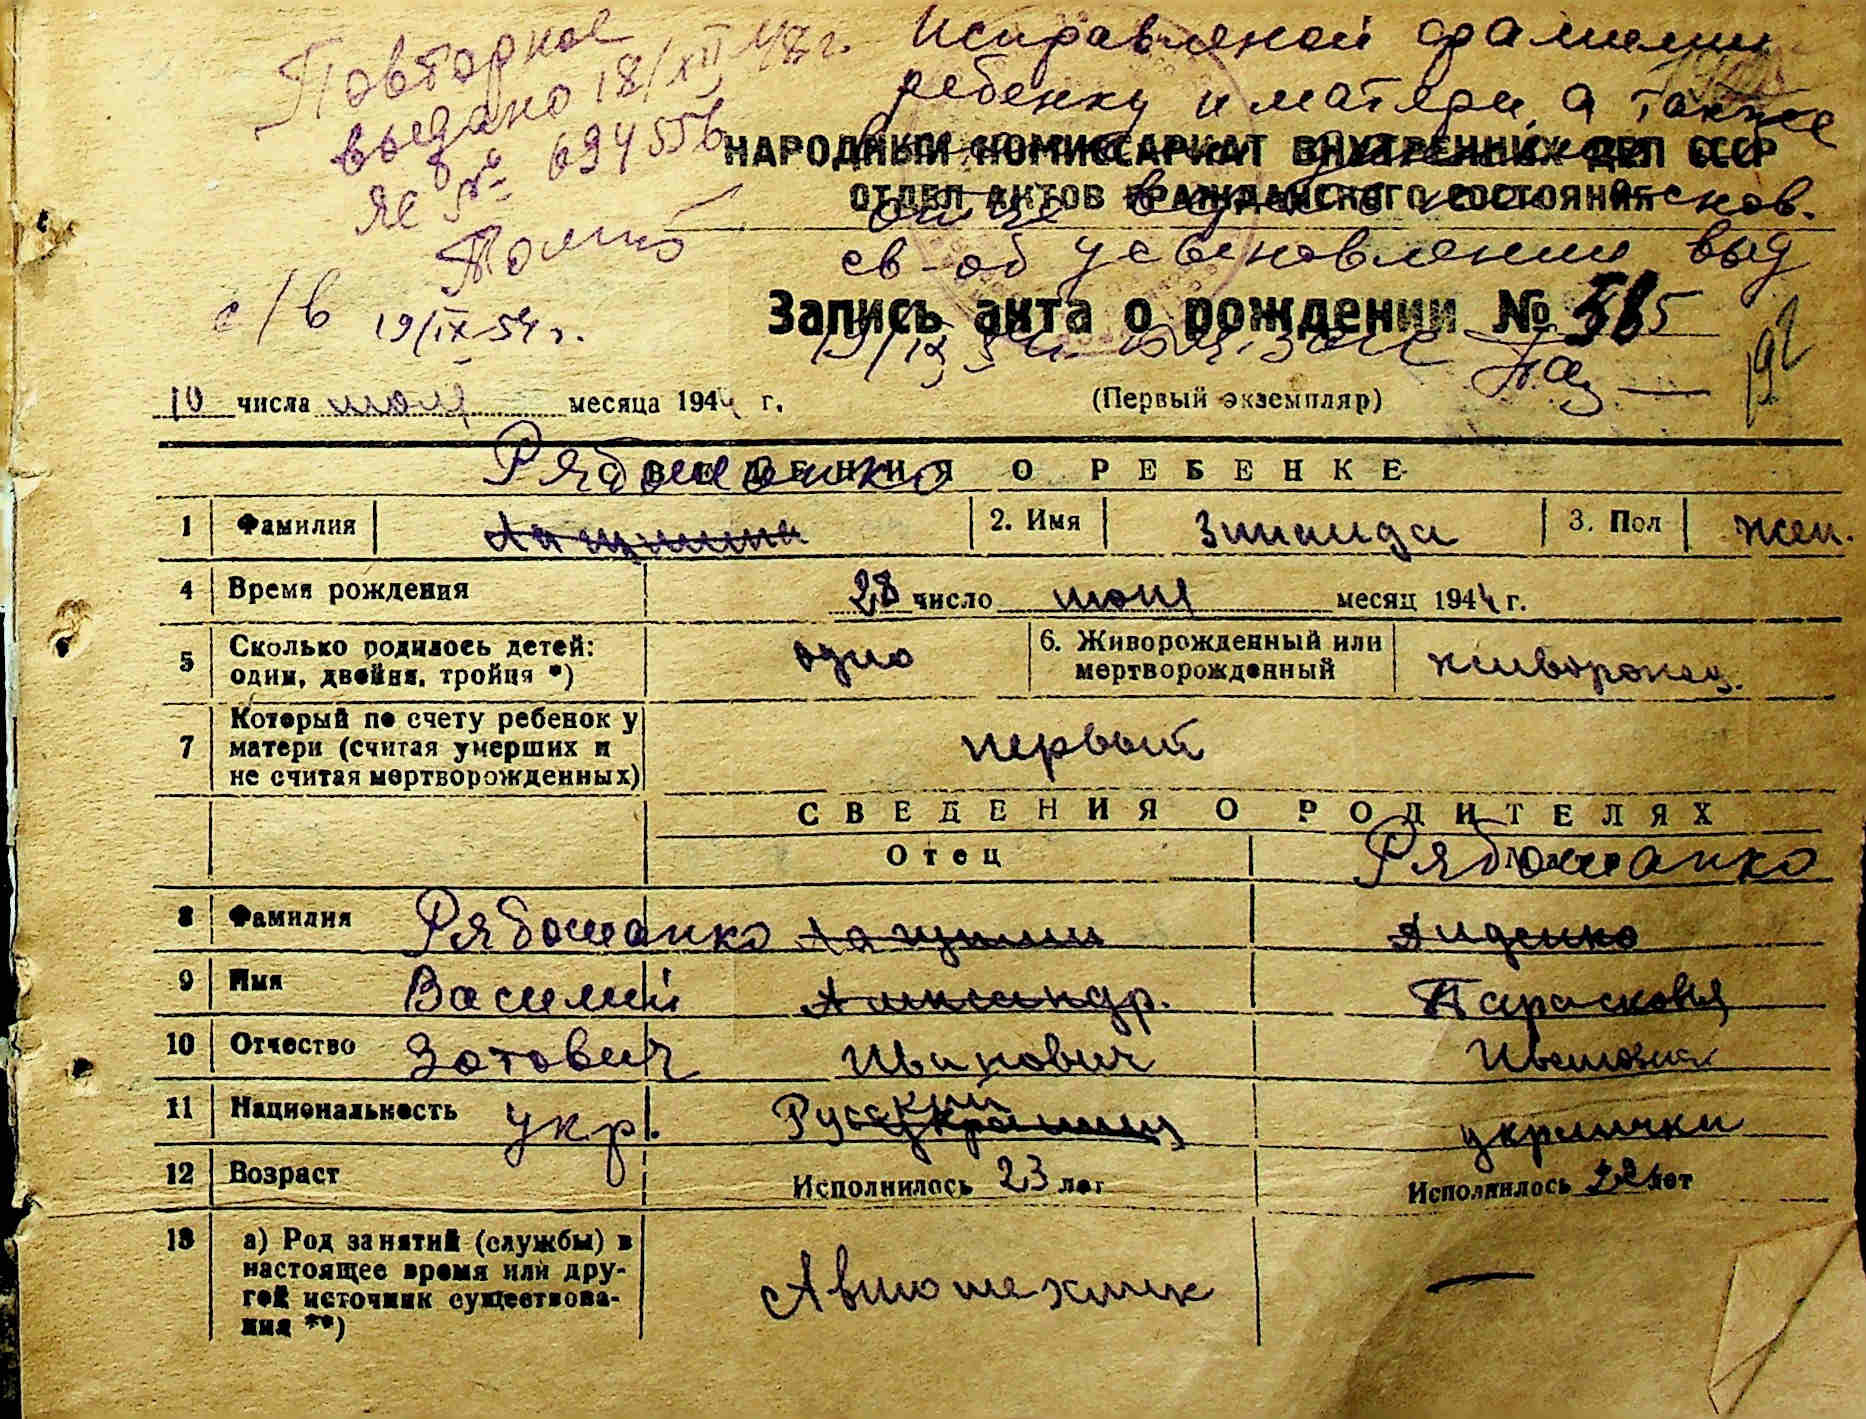 Повторное
выдано 18/XII 48 г.
ЯС № 694556
с/в 19/IX-54 г.
Исправленой фамилии
ребенку и матери, а также
НАРОДНЫЙ КОМИССАРИАТ ВНУТРЕННИХ ДЕЛ СССР
ОТДЕЛ АКТОВ ГРАЖДАНСКОГО СОСТОЯНИЯ
отце основ.
св-об усыновлении выд
Запись акта о рождении №
19/IX 54
192
10 числа июля месяца 1944 г. (Первый экземпляр)
Рябошапко
СВЕДЕНИЯ О РЕБЕНКЕ
1 Фамилия Лапшина 2. Имя Зинаида 3. Пол жен.
4 Время рождения 28 число июня месяц 1944 г.
5 Сколько родилось детей: одно 6. Живорожденный или живорожд.
один, двойня, тройня *) мертворожденный
Который по счету ребенок у
7 матери (считая умерших и первый
не считая мертворожденных)
СВЕДЕНИЯ О РОДИТЕЛЯХ
Отец Рябошапко
8 Фамилия Рябошапко Диденко
9 Имя Василий Александр. Парасковья
10 Отчество Зотович Иванович
11 Национальность укр. Русский украинец украинка
12 Возраст Исполнилось 23 лет Исполнилось 22 лет
13 а) Род занятий (службы) в
настоящее время или дру- Автотехник —
гой источник существова-
ния **)